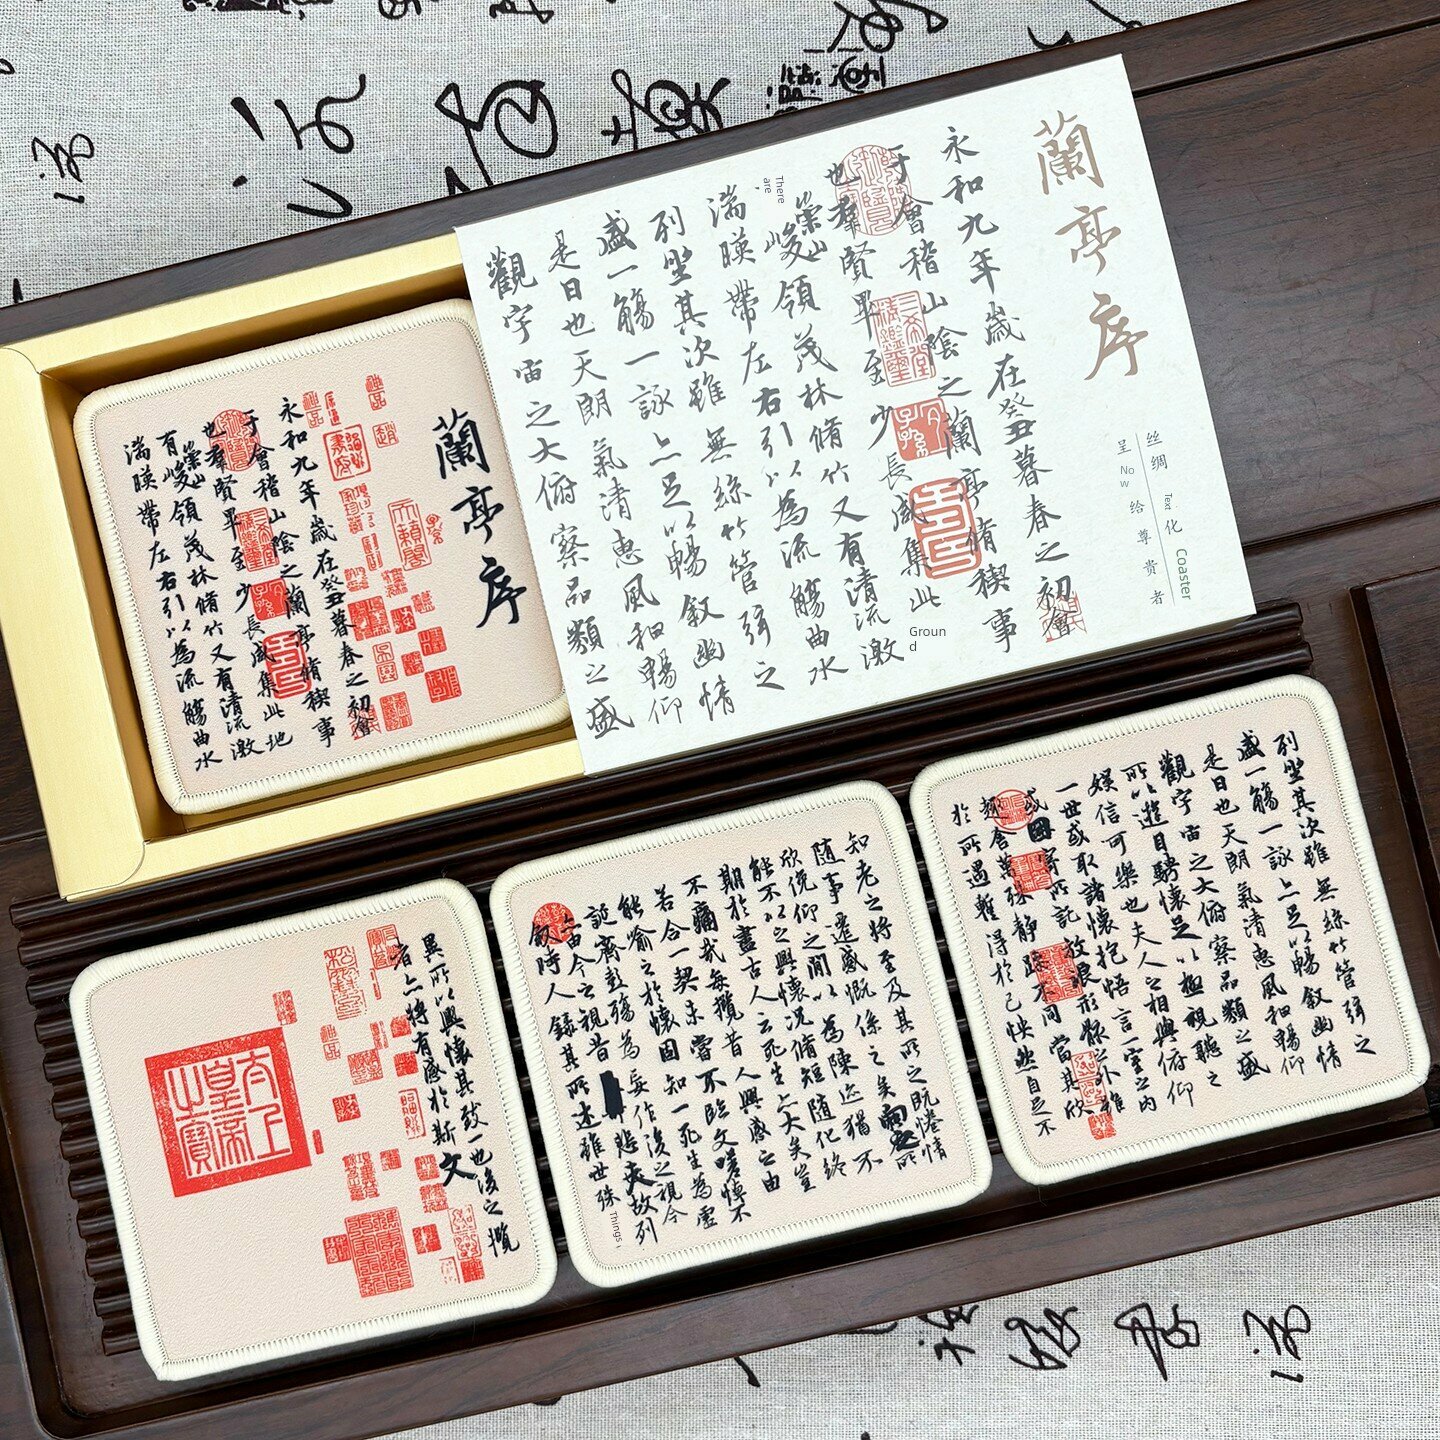 蘭亭序
丝绸 Text. 化 Coaster
呈 Now 给尊贵者
永和九年歲在癸丑暮春之初會
于會稽山陰之蘭亭脩稧事
也羣賢畢至少長咸集此 Ground
There are, 崇山峻領茂林脩竹又有清流激
湍暎帶左右引以為流觴曲水
列坐其次雖無絲竹管弦之
盛一觴一詠亦足以暢叙幽情
是日也天朗氣清惠風和暢仰
觀宇宙之大俯察品類之盛
蘭亭序
永和九年歲在癸丑暮春之初會
于會稽山陰之蘭亭脩稧事
也羣賢畢至少長咸集此地
有崇山峻領茂林脩竹又有清流激
湍暎帶左右引以為流觴曲水
列坐其次雖無絲竹管弦之
盛一觴一詠亦足以暢叙幽情
是日也天朗氣清惠風和暢仰
觀宇宙之大俯察品類之盛
所以遊目騁懷足以極視聽之
娛信可樂也夫人之相與俯仰
一世或取諸懷抱悟言一室之內
或因寄所託放浪形骸之外雖
趣舍萬殊靜躁不同當其欣
於所遇暫得於己怏然自足不
知老之將至及其所之既惓情
隨事遷感慨係之矣向之所
欣俛仰之間以為陳迹猶不
能不以之興懷況脩短隨化終
期於盡古人云死生亦大矣豈
不痛哉每攬昔人興感之由
若合一契未嘗不臨文嗟悼不
能喻之於懷固知一死生為虛
誕齊彭殤為妄作後之視今
亦由今之視昔悲夫故列
叙時人錄其所述雖世殊 Things
異所以興懷其致一也後之攬
者亦將有感於斯文
太上皇帝之寶